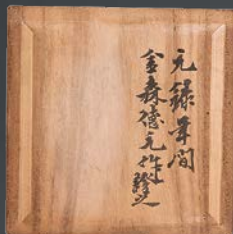 元録年間
金森徳元作證之